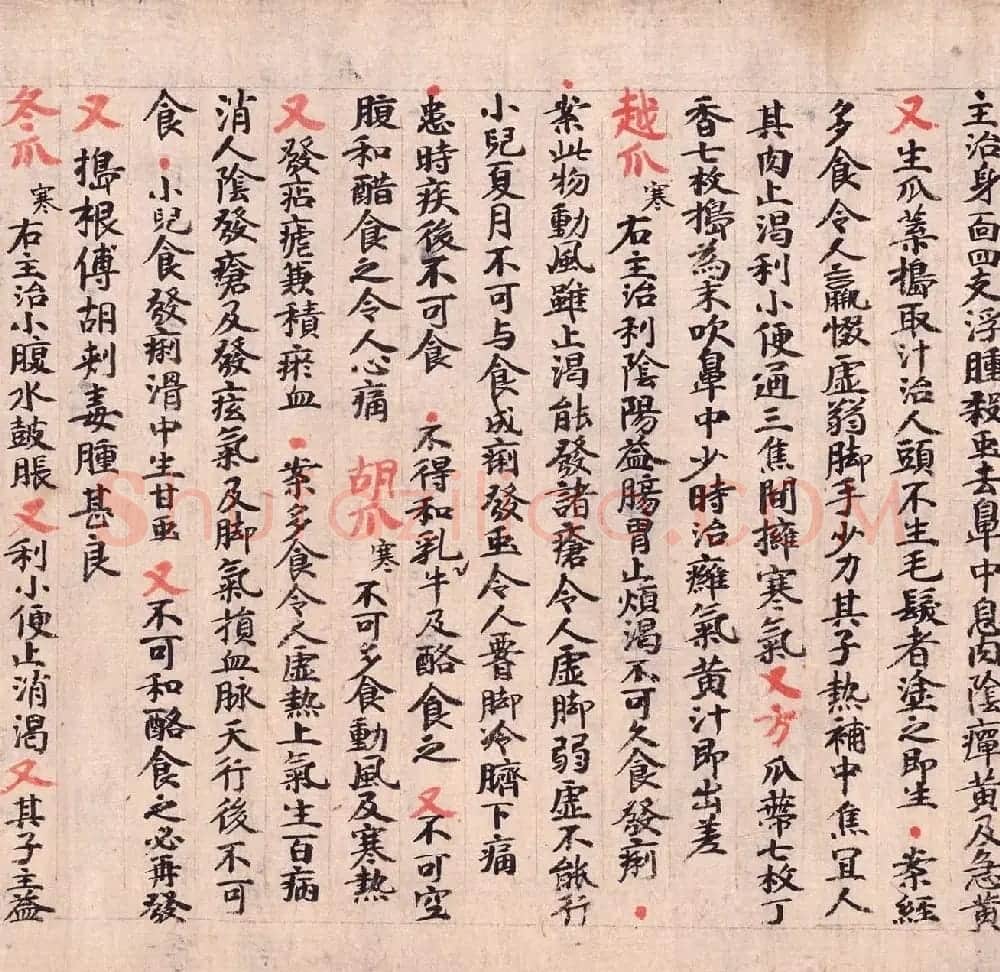 主治身面四支浮腫殺虫去鼻中息肉陰癉黄及急黄
又生瓜葉搗取汁治人頭不生毛髮者塗之即生・案經
多食令人羸惙虚弱脚手少力其子熱補中焦冝人
其肉止渴利小便通三焦間擁寒氣又方瓜蔕七枚丁
香七枚搗為末吹鼻中少時治癰氣黄汁即出差
越瓜寒右主治利陰陽益腸胃止煩渴不可久食發痢・
・案此物動風雖止渴能發諸瘡令人虚脚弱虚不能行
小兒夏月不可与食成痢發虫令人𦝫脚冷臍下痛
・患時疾後不可食・不得和乳牛√及酪食之又不可空
腹和醋食之令人心痛胡瓜寒不可多食動風及寒熱
又發痁瘧兼積瘀血・案多食令人虚熱上氣生百病
消人陰發瘡及發痃氣及脚氣損血脉天行後不可
食・小兒食發痢滑中生甘虫又不可和酪食之必再發
又搗根傅胡刺毒腫甚良
冬瓜寒右主治小腹水鼓脹又利小便止消渴又其子主益
Shufaziliao.COM